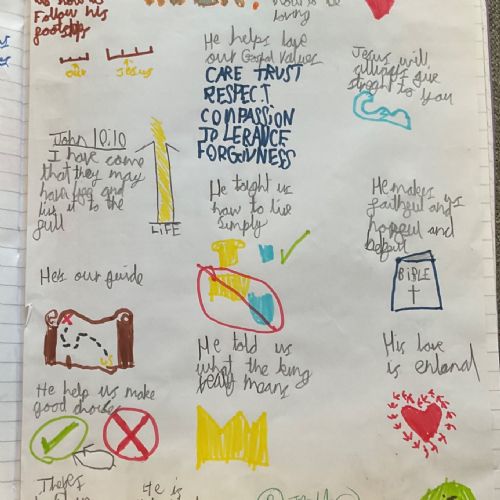 Follow his
footstps
our
Jesus
how to be
loving
He helps love
our Gospel Values
CARE TRUST
RESPECT
COMPASSION
TOLERANCE
FORGIVNESS
Jesus will
allways give
streght to you
John 10:10
I have come
that they may
have life and
live it to the
full
LIFE
He taight us
how to live
simply
He makes us
faithful and
hopeful and
BIBLE
He's our guide
He told us
what the king
realy means
His love
is enland
He help us make
good choises
Theres
He is